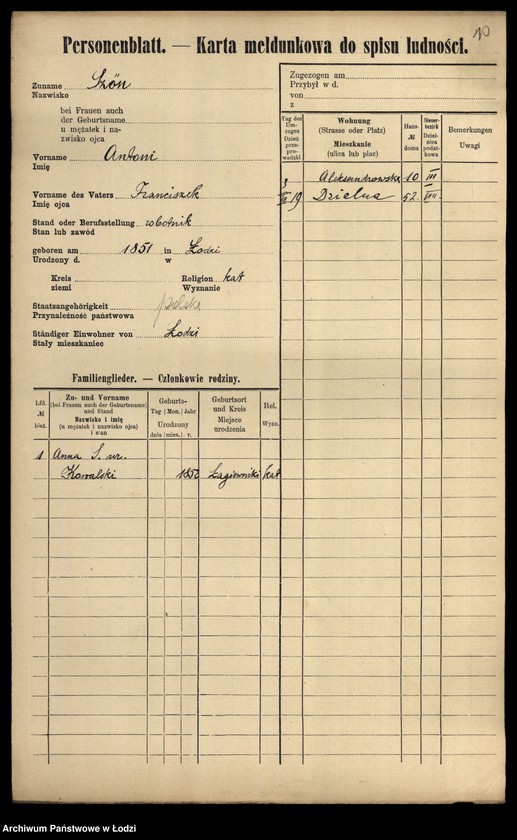 10
Personenblatt. — Karta meldunkowa do spisu ludności.
Zuname Szön
Nazwisko
bei Frauen auch
der Geburtsname
u mężatek i na-
zwisko ojca
Vorname Antoni
Imię
Vorname des Vaters Franciszek
Imię ojca
Stand oder Berufsstellung robotnik
Stan lub zawód
geboren am 1851 in Łodzi
Urodzony d. w
Kreis Religion kat
ziemi Wyznanie
Staatsangehörigkeit polska
Przynależność państwowa
Ständiger Einwohner von Łodzi
Stały mieszkaniec
Familienglieder. — Członkowie rodziny.
Lfd. № bież.
Zu- und Vorname
(bei Frauen auch der Geburtsname)
und Stand
Nazwisko i imię
(u mężatek i nazwisko ojca)
i stan
Geburts-
Tag | Mon. | Jahr
Urodzony
dnia | mies. | r.
Geburtsort
und Kreis
Miejsce
urodzenia
Rel.
Wyzn.
1 Anna S. ur.
Kowalski 1852 Łagiewniki kat
Zugezogen am
Przybył w d.
von
z
Tag des
Um-
zuges
Dzień
prze-
prowadzki
Wohnung
(Strasse oder Platz)
Mieszkanie
(ulica lub plac)
Haus-
№
domu
Steuer-
bezirk
Dziel-
nica
podat-
kowa
Bemerkungen
Uwagi
Aleksandrowska 10 III
19 Dzielna 52
Archiwum Państwowe w Łodzi